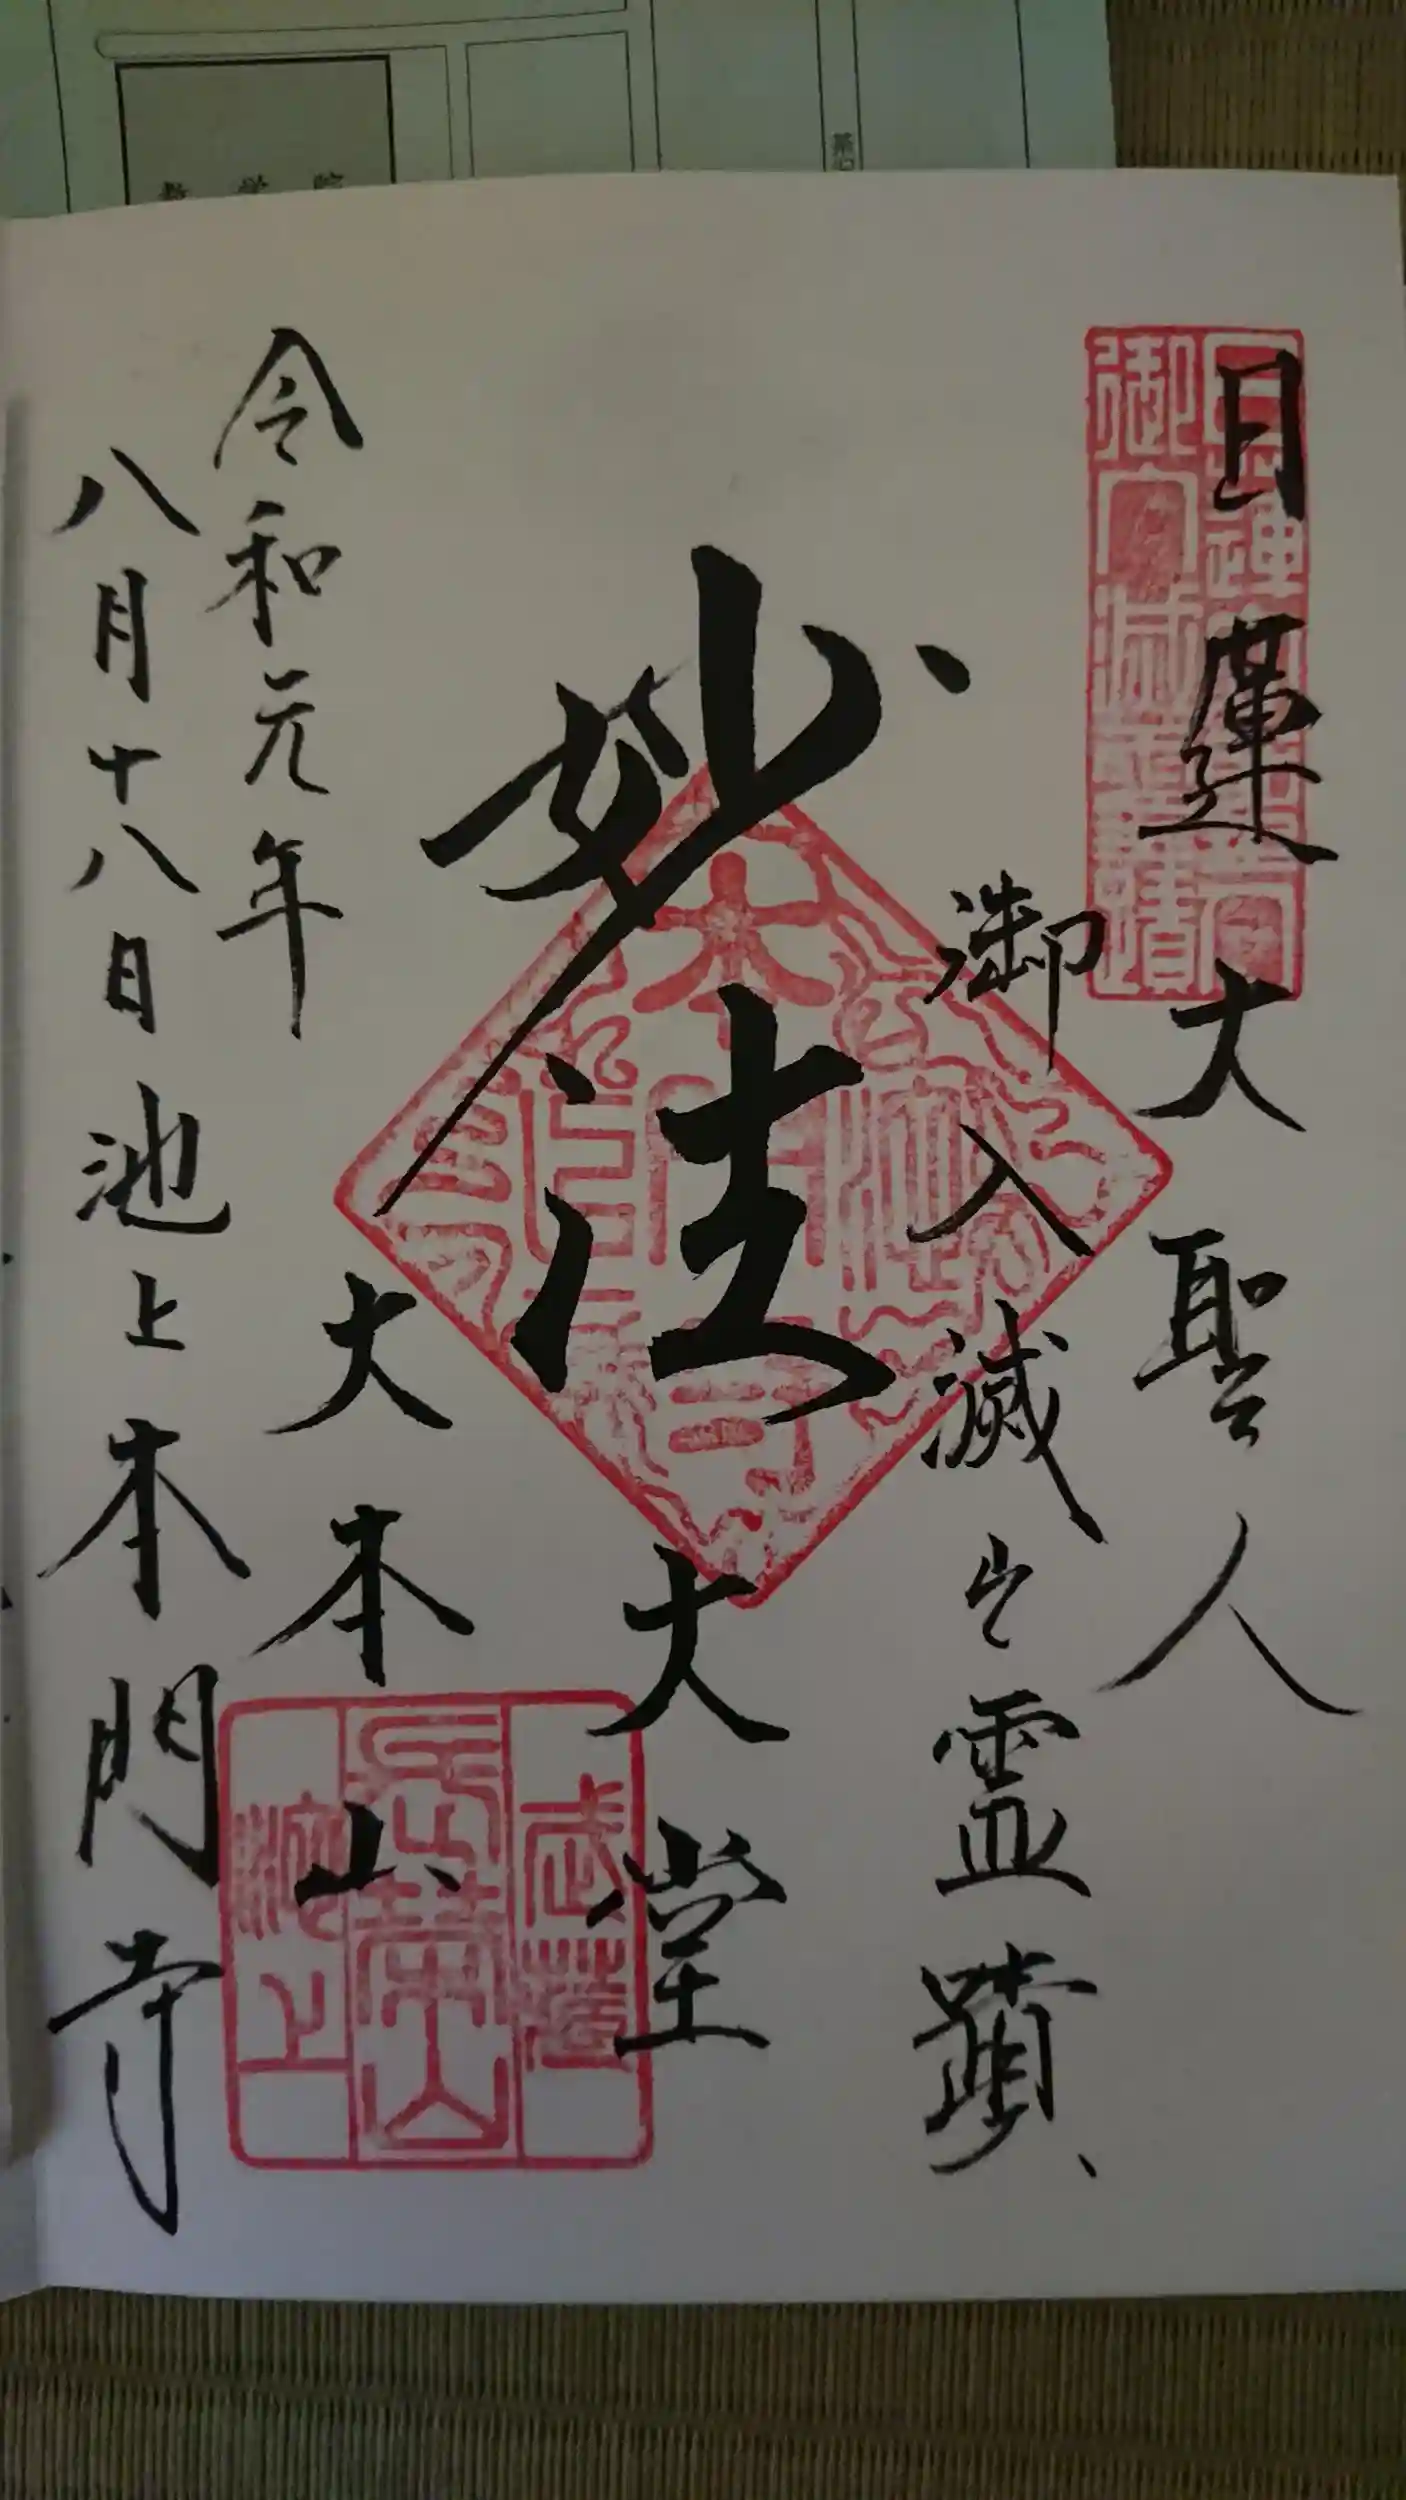 日蓮大聖人
御入滅之霊蹟
妙法
大堂
大本山
令和元年
八月十八日池上本門寺
武蔵
長栄山
池上